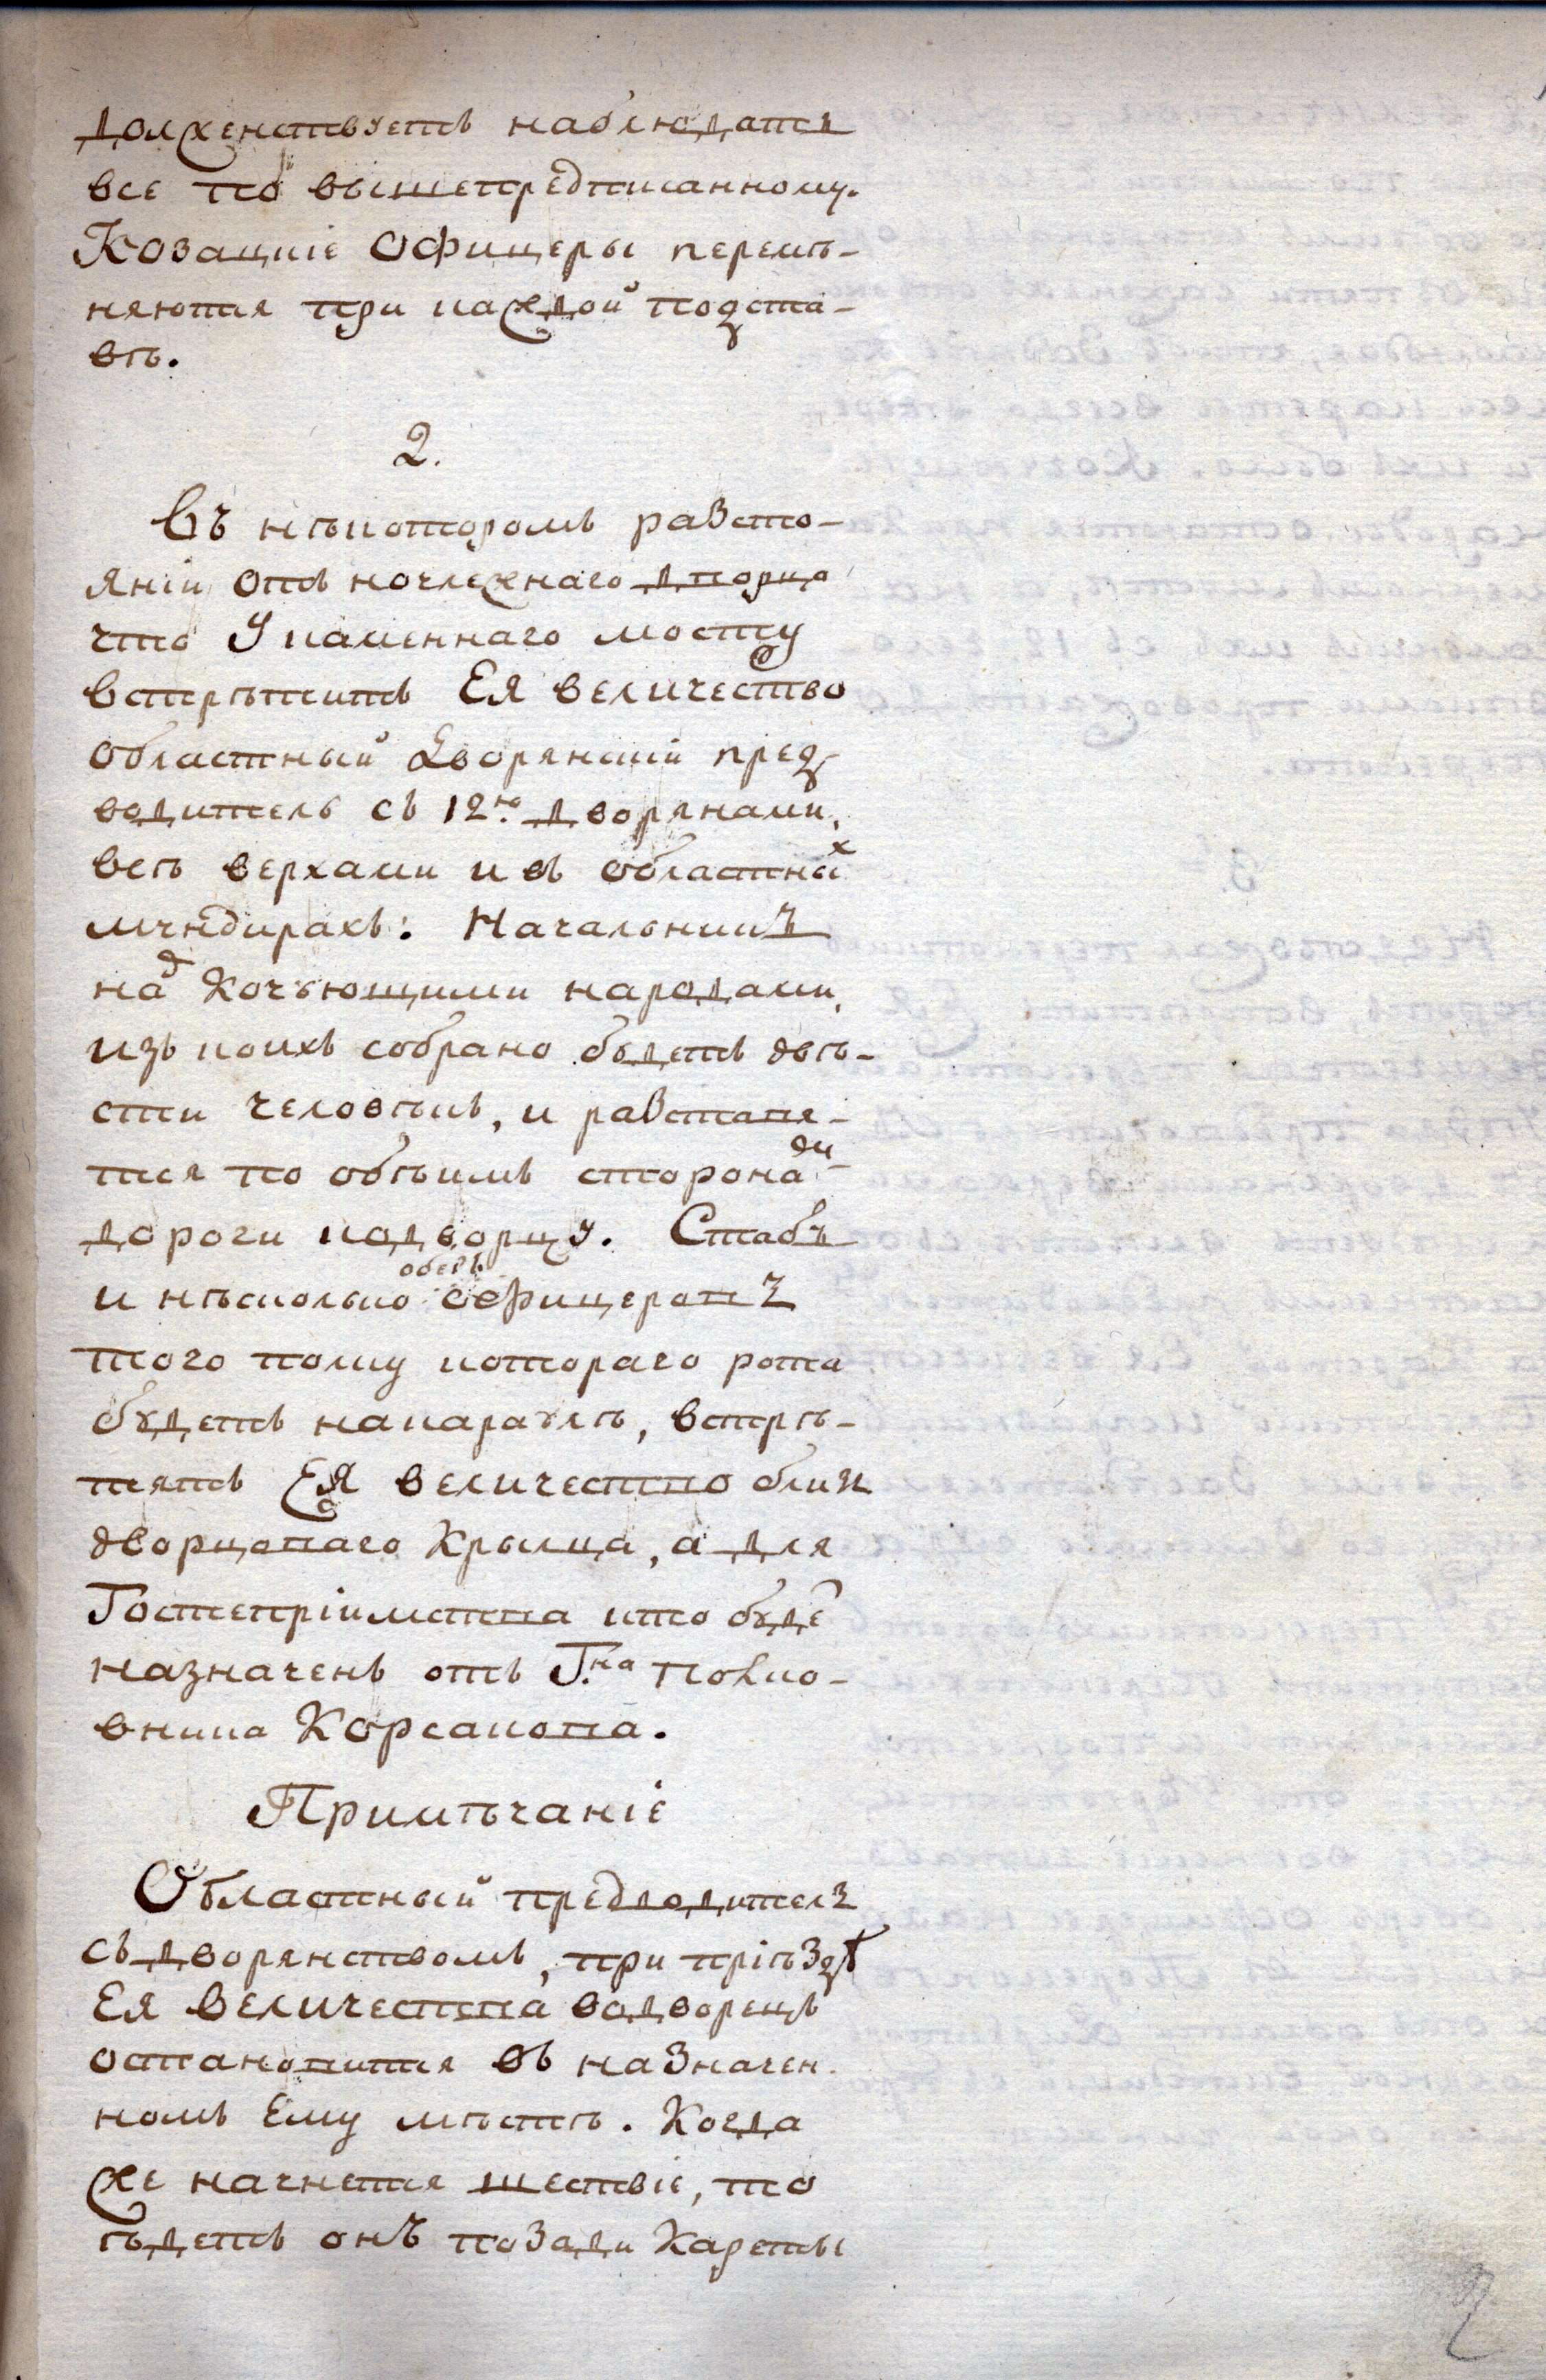 долженствуетъ наблюдать
все по вышепредписанному.
Козацкіе Офицеры перемѣ-
няются при каждой подста-
вѣ.
2.
Въ нѣкоторомъ разсто-
яніи отъ ночлежнаго дворца
что У каменнаго мосту
встрѣтитъ Ея величество
областный Дворянскій пред-
водитель съ 12ю дворянами,
всѣ верхами и въ областных
мундирахъ: Начальникъ
над Кочующими народами,
изъ коихъ собрано будетъ двѣ-
сти человѣкъ, и разставя-
тся по обѣимъ сторонам
дороги кодворцу. Стабъ
и нѣсколько оберъ офицеровъ
того полку котораго рота
будетъ накараулѣ, встрѣ-
тятъ Ея величество близ
дворцоваго Крылца, а для
Гостепріимства кто буде
назначенъ отъ Г.на полко-
вника Корсакова.
Примѣчаніе
Областный предводитель
съ дворянствомъ, при пріѣздѣ
Ея величества водворецъ
остановится въ назначен-
номъ Ему мѣстѣ. Когда
же начнется шествіе, то
ѣдетъ онъ позади Кареты
2